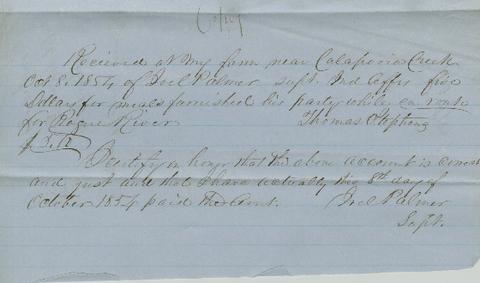 Copy
Received at my farm near Calapooia Creek
Oct 8, 1854 of Joel Palmer Supt. Ind Affrs five
Dollars for meals furnished his party while en route
for Rogue River Thomas Stephens
$5.
I certify on honor that the above account is correct
and just and that I have actually this 8th day of
October 1854 paid the amt. Joel Palmer
Supt.